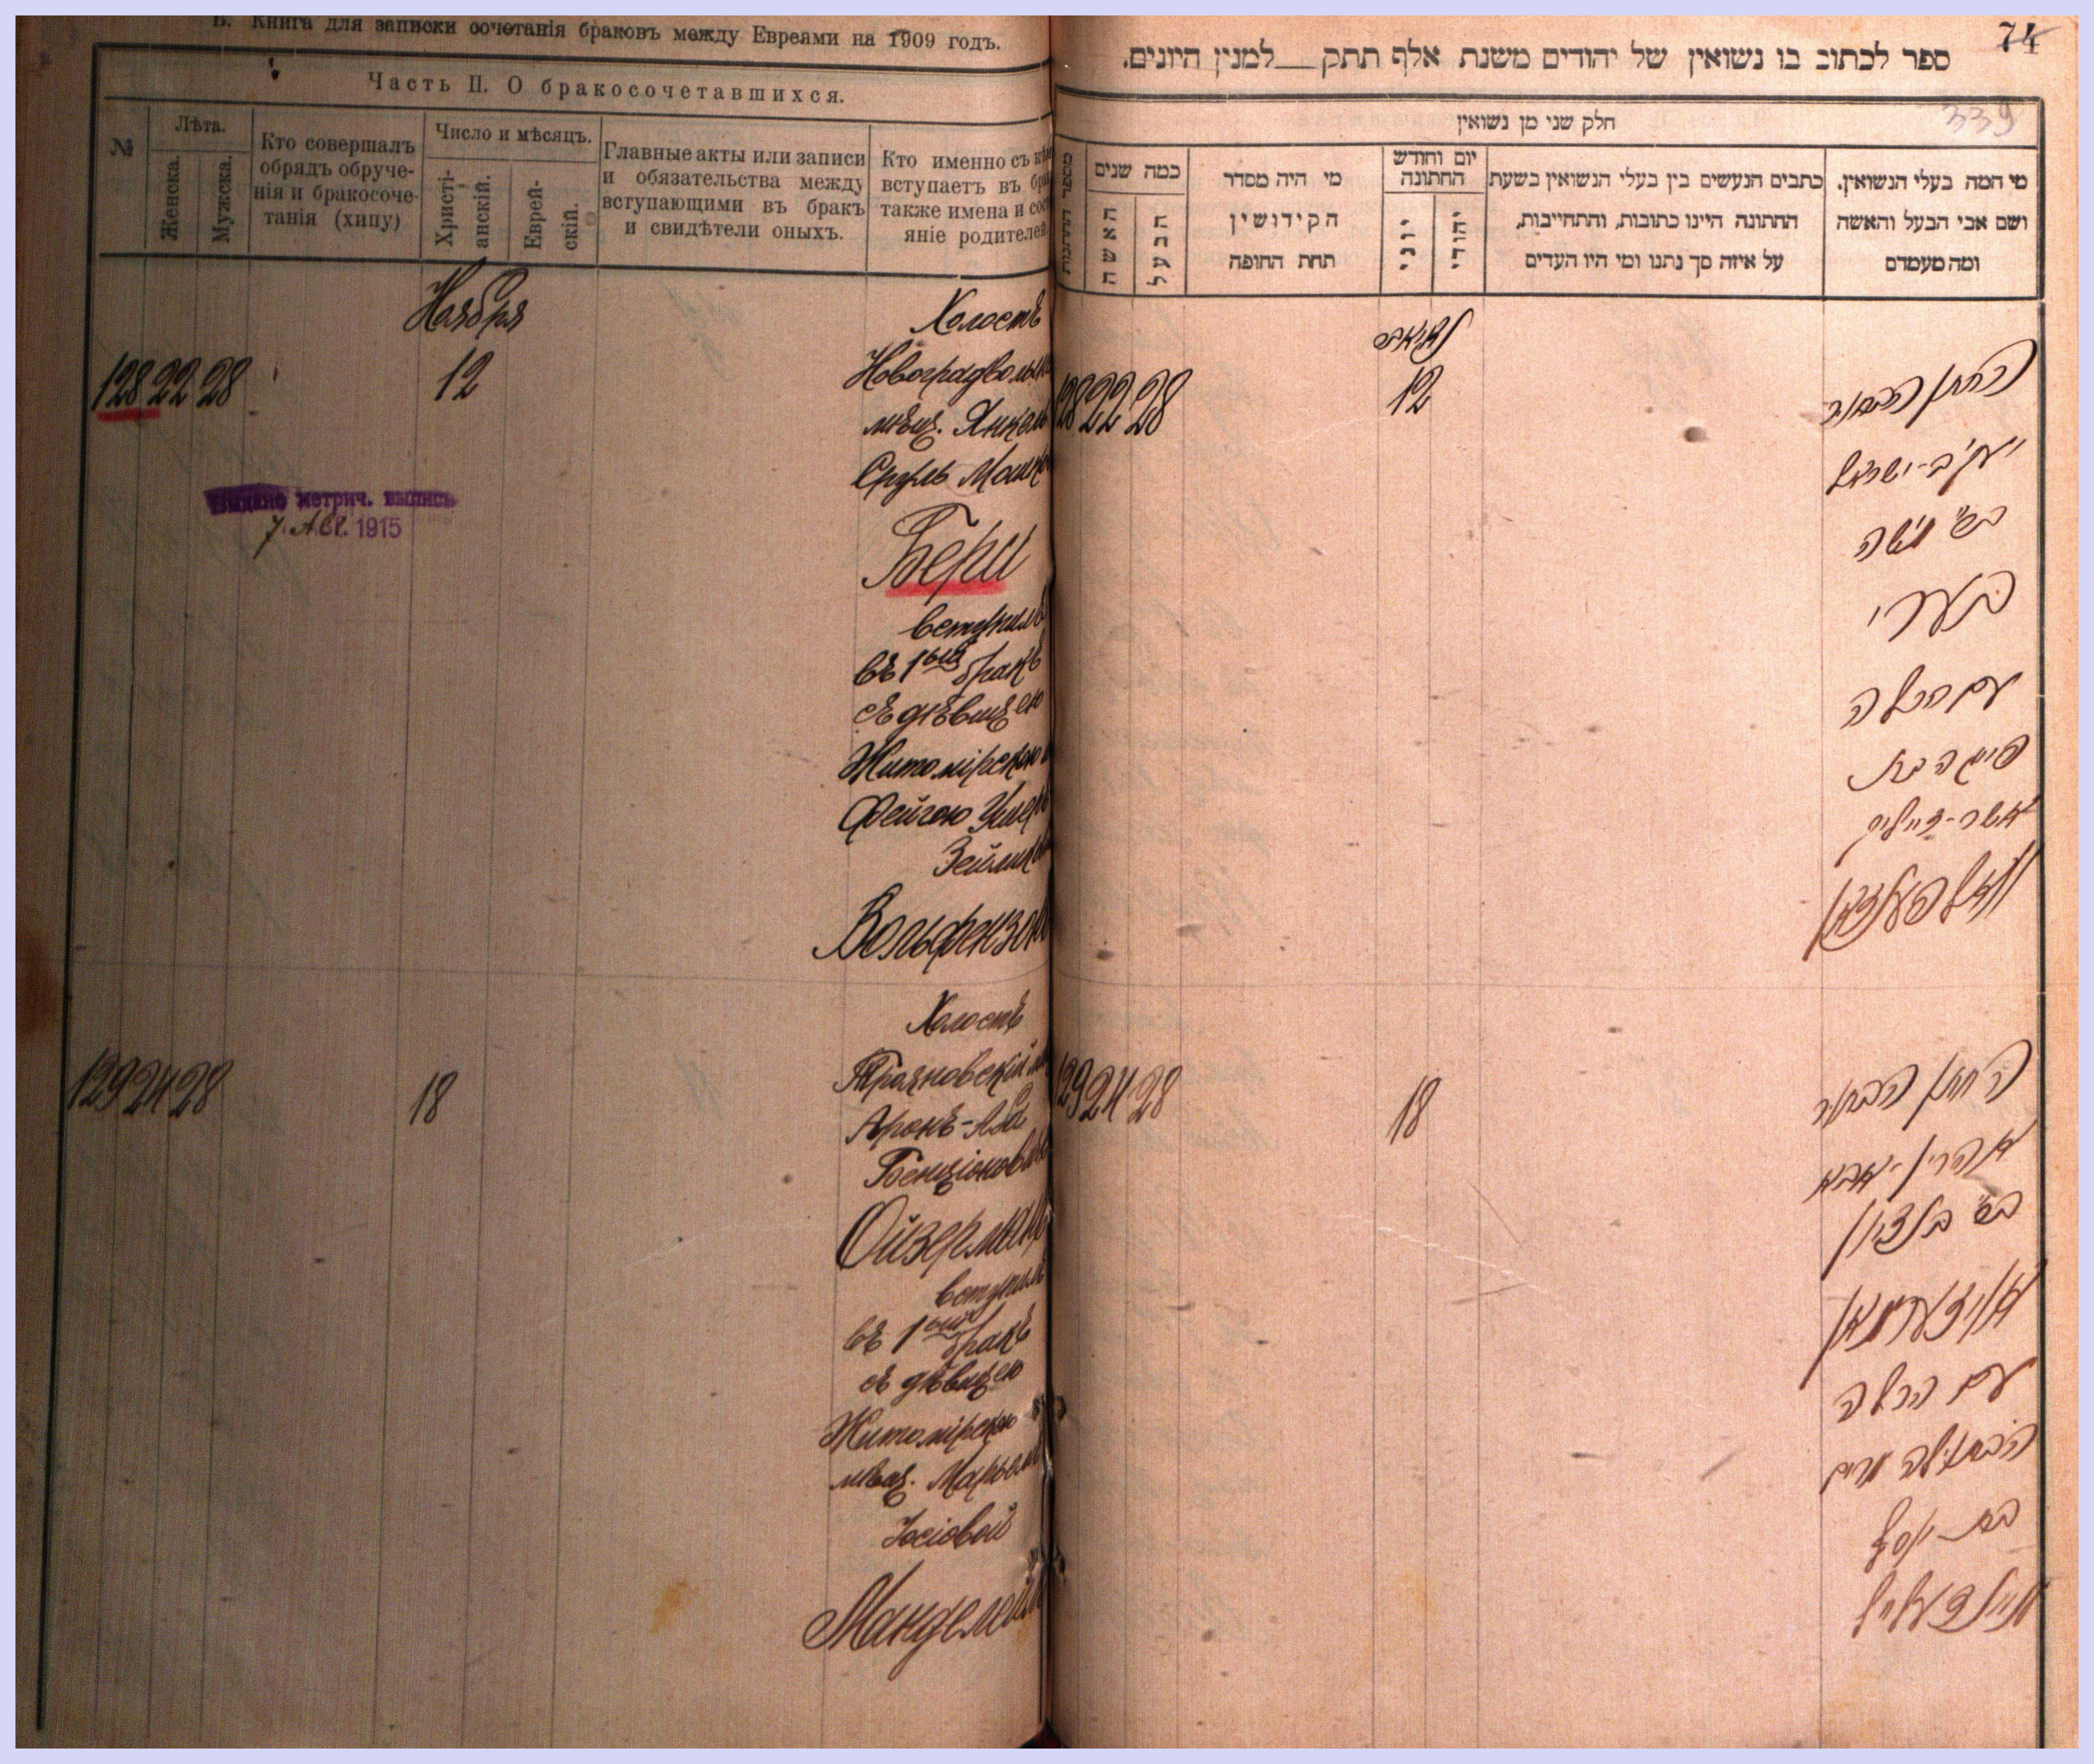 В. Книга для записки сочетанія браковъ между Евреями на 1909 годъ.
Часть II. О бракосочетавшихся.
№
Лѣта.
Женска.
Мужска.
Кто совершалъ
обрядъ обруче-
нія и бракосоче-
танія (хипу)
Число и мѣсяцъ.
Христі-
анскій.
Еврей-
скій.
Главные акты или записи
и обязательства между
вступающими въ бракъ
и свидѣтели оныхъ.
Кто именно съ кѣмъ
вступаетъ въ бра
также имена и сос
яніе родителей
Ноября
128 22 28 12
Холостъ
Новоградволын
мѣщ. Янкель
Сруль Мошко
Бери
вступилъ
въ 1ый бракъ
съ дѣвицею
Житомірскою
Фейгою Ушер
Зейлик
Вольфензон
Выдана метрич. выпись
7 Авг. 1915
129 24 28 18
Холостъ
Трояновскій
Аронъ-Аба
Бенціонов
Ойзерман
вступил
въ 1ый бракъ
съ дѣвицею
Житомірскою
мѣщ. Марьям
Іосіовой
Мандел
74
339
ספר לכתוב בו נשואין של יהודים משנת אלף תתק__למנין היונים.
חלק שני מן נשואין
מספר החתונות
כמה שנים
האשה
הבעל
מי היה מסדר
הקידושין
תחת החופה
יום וחודש
החתונה
יוני
יהודי
כתבים הנעשים בין בעלי הנשואין בשעת
החתונה היינו כתובות, והתחייבות,
על איזה סך נתנו ומי היו העדים
מי המה בעלי הנשואין.
ושם אבי הבעל והאשה
ומה מעמדם
128 22 28 12
החתן הבחור
יעקב-ישראל
בר' משה
בערי
עם הכלה
פייגה בת
אשר-זעליק
וואלפענזאן
129 24 28 18
החתן הבחור
אהרן-אבא
בר' בנציון
אויזערמאן
עם הכלה
הבתולה מרים
בת יוסף